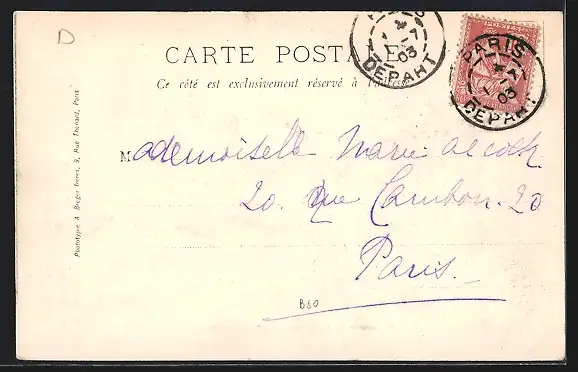 D
CARTE POSTALE
Ce côté est exclusivement réservé à l'adresse
PARIS
7
03
DEPART
PARIS
7
03
DEPART
Mademoiselle Marie Alcock
20. Rue Cambon. 20
Paris.
B50
Phototypie A. Breger frères, 9, Rue Thénard, Paris